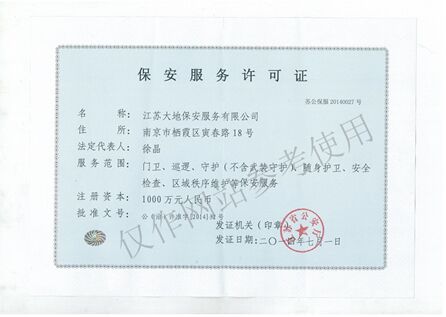 保安服务许可证
苏公保服20140027号
名称：江苏大地保安服务有限公司
住所：南京市栖霞区寅春路18号
法定代表人：徐晶
服务范围：门卫、巡逻、守护（不含武装守护）、随身护卫、安全
检查、区域秩序维护等保安服务
注册资本：1000万元人民币
批准文号：
发证机关（印章
发证日期：二〇一四年七月一日
仅作网站参考使用